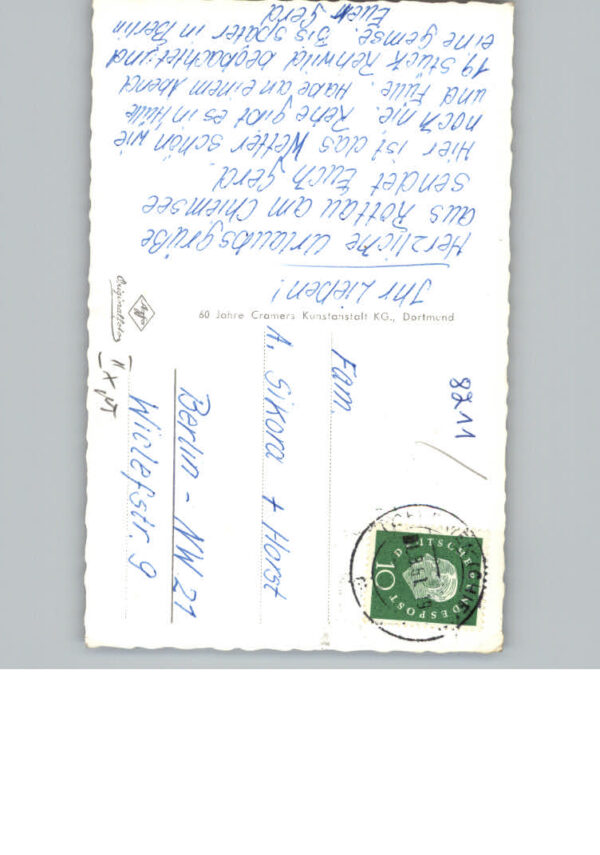 Ihr Lieben!
Herzliche Urlaubsgrüße
aus Rottau am Chiemsee
sendet Euch Gerd.
Hier ist das Wetter schön wie
noch nie. Rehe gibt es in Hülle
und Fülle. Habe an einem Abend
19 Stück Rehwild beobachtet und
eine Gemse. Bis später in Berlin
Euer Gerd
60 Jahre Cramers Kunstanstalt KG., Dortmund
Agfa
Originalfoto
8211
Fam.
A. Sikora + Horst
Berlin - NW 21
Wiclefstr. 9
DEUTSCHE BUNDESPOST
10